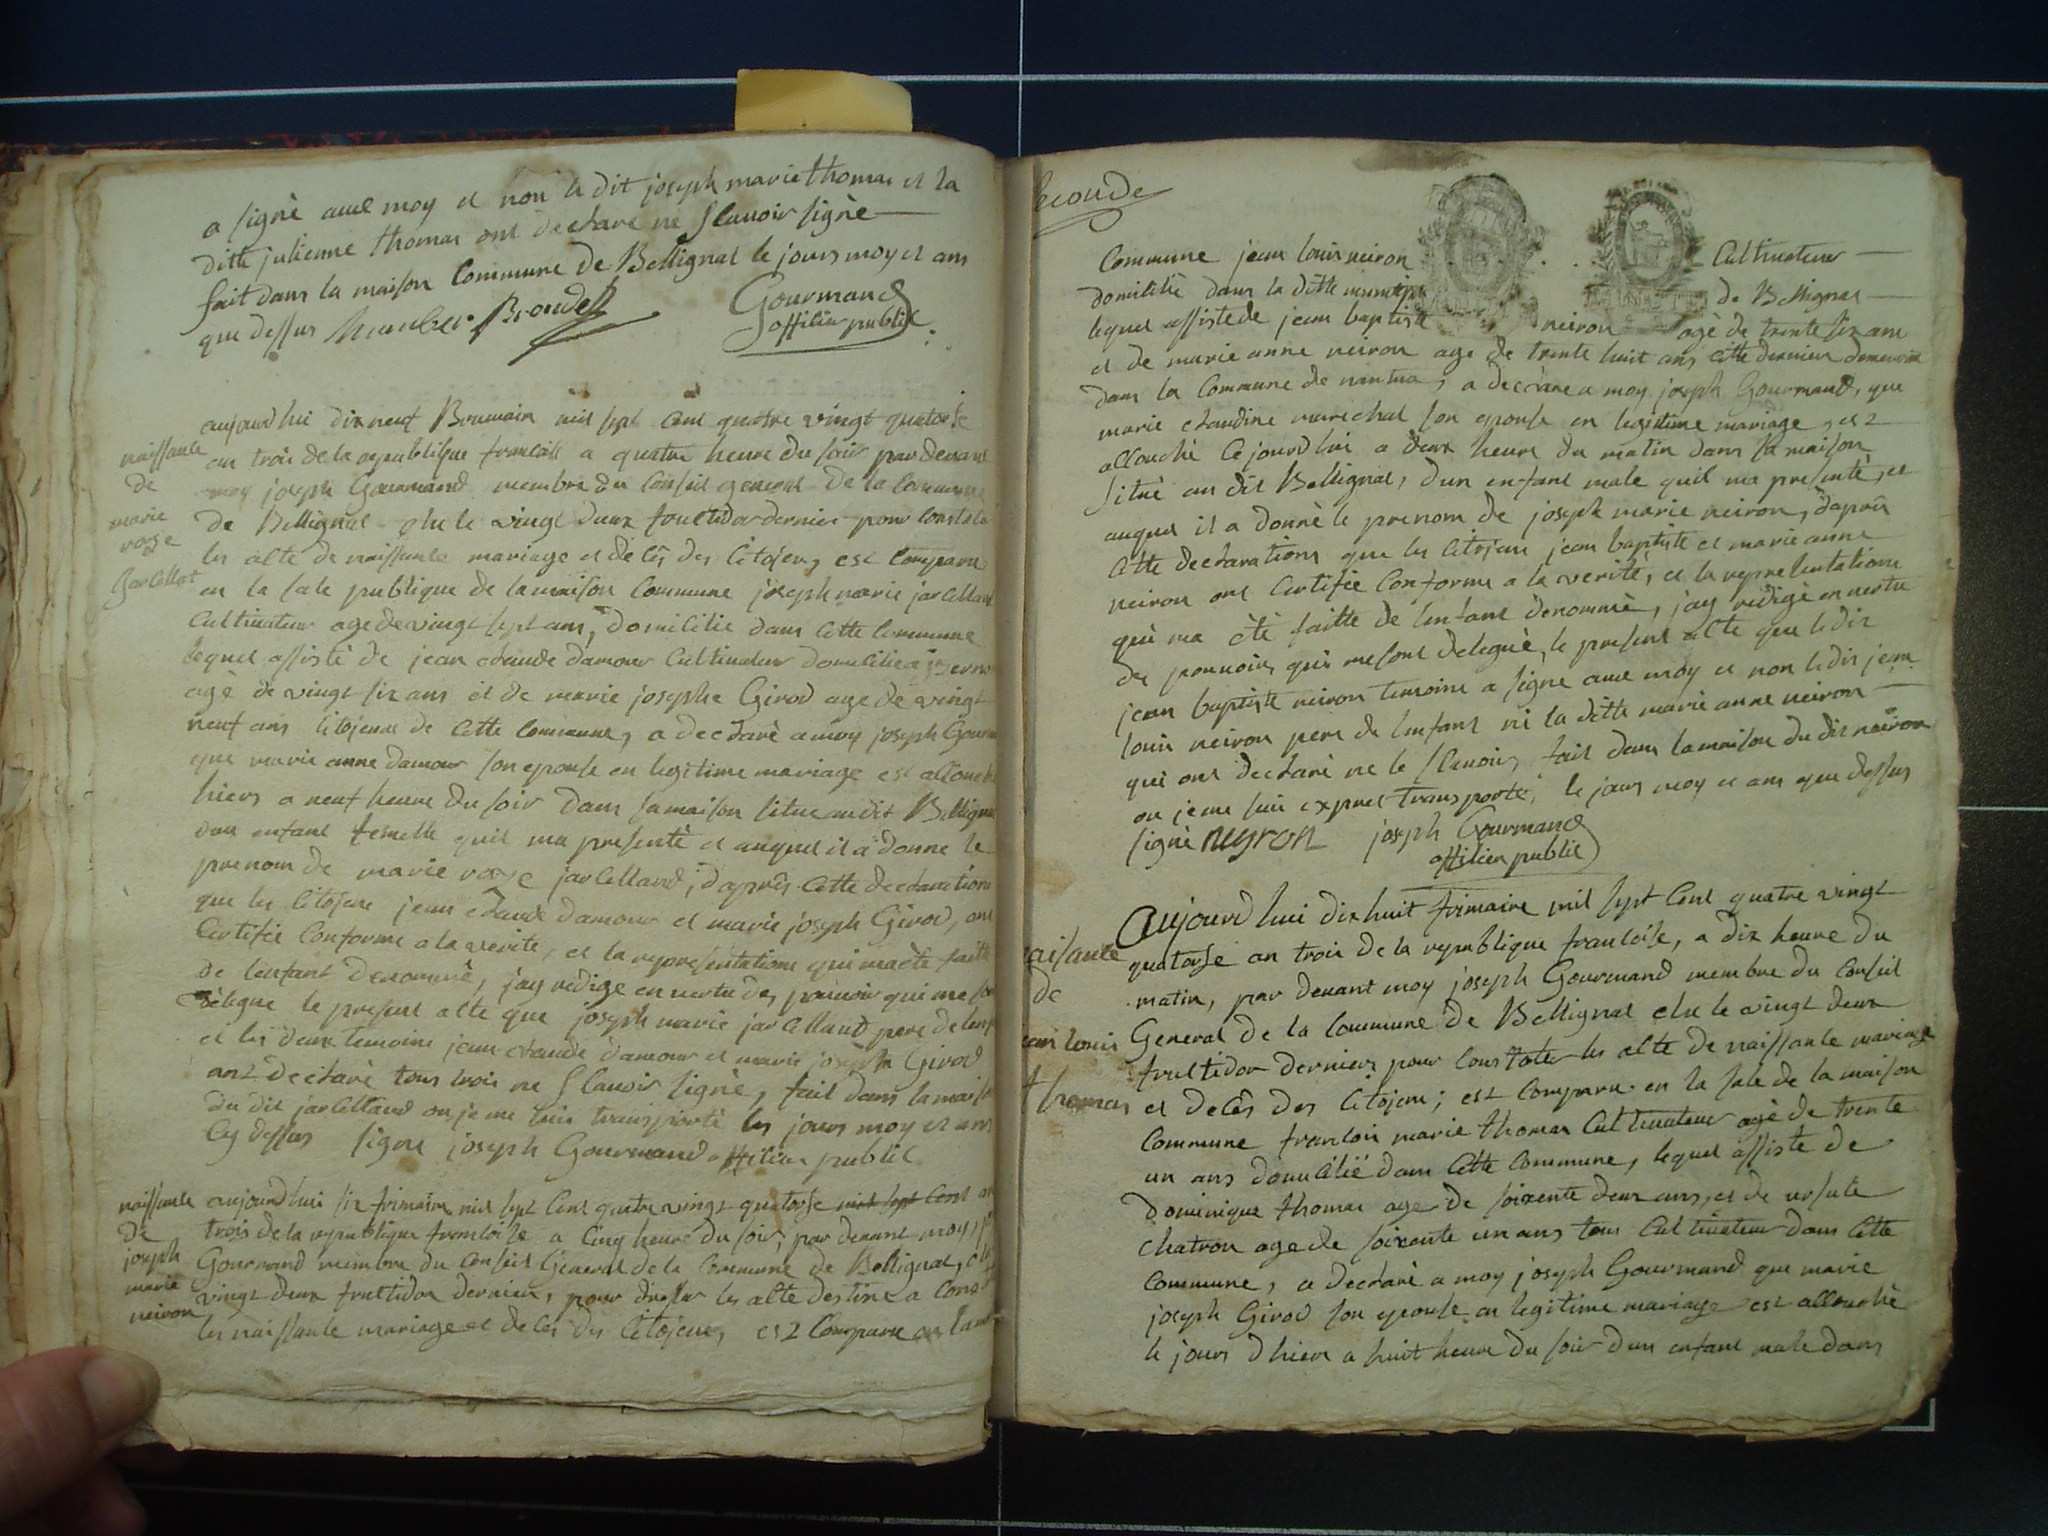 a signè avec moy et non le dit joseph marie thomas et la
ditte julienne thomas ont declare ne scavoir signè
fait dans la maison Commune de Bellignat le jours moy et ans
que dessus
Gourmand
officier public
naissance
de
marie
roze
Jarcellot
aujourdhui dix neuf Brumair mil sept cent quatre vingt quatorse
an trois de la republique francaise a quatre heure du soir par devant
moy joseph Gourmand membre du Conseil general de la Commune
de Bellignat elu le vingt deux fructidor dernier pour constater
les acte de naissance mariage et décés des Citojens, est comparu
en la sale publique de la maison Commune joseph marie jarcelland
Cultivateur age de vingt sept ans, domicilie dans cette Commune
lequel assistè de jean claude damour Cultivateur domicilie a
agè de vingt six ans et de marie josephe Girod age de vingt
neuf ans Citojenne de cette Commune, a declarè a moy joseph Gourm
que marie anne damour son epouse en legitime mariage est accouche
hiers a neuf heure du soir dans sa maison situe audit Bellignat
dun enfant femelle quil ma presentè et auquel il a donne le
prenom de marie roze jarcelland, daprês cette declaration
que les Citojens jean claude damour et marie joseph Girod, ont
Certifie Conforme a la verite, et la representations qui ma ète faitte
de lenfant denommè, jay redige en vertu des pouvoir qui me son
delegue le present acte que joseph marie jarcelland pere de lenf
et les deux temoins jean claude damour et marie joseph Girod
ont declarè tous trois ne scavoir signè, fait dans la mais
du dit jarcelland ou je me suis transportè les jours moy et ans
Cy dessus signe joseph Gourmand officier public
naissance
de
joseph
marie
neiron
aujourdhui six frimaire mil sept Cent quatre vingt quatorse mil sept Cent an
trois de la republique francoise a Cinq heure du soir, par devant moy, j
Gourmand membre du Conseil General de la Commune de Bellignat, elu
vingt deux fructidor dernier, pour dresser les acte destine a Const
les naissance mariage et deces des Citojens, est Comparu en la
seconde
Commune jean louis neiron Cultivateur
domicilié dans la ditte municip de Bellignat
lequel assiste de jean baptiste neiron agè de trente six ans
et de marie anne neiron age de trente huit ans cette derniere demeurant
dans la Commune de nantua, a declare a moy joseph Gourmand, que
marie claudine marechal son epouse en legitime mariage, est
accouchè cejourdhui a deux heure du matin dans sa maison
situè au dit Bellignat, dun enfant male quil ma presentè, et
auquel il a donnè le prenom de joseph marie neiron, daprês
cette declarations que les Citojens jean baptiste et marie anne
neiron ont Certifie Conforme a la verite, et la representations
qui ma ètè faitte de lenfant denommè, jay redigè en vertu
des pouvoirs qui me sont deleguè, le present acte que le dit
jean baptiste neiron temoins a signe avec moy et non le dit jean
louis neiron pere de lenfant ni la ditte marie anne neiron
qui ont declarè ne le scavoir, fait dans la maison du dit neiron
ou je me suis expres transportè, le jours moy et ans que dessus
signè neyron joseph Gourmand
officier public
naisance
de
jean louis
thomas
Aujourdhui dix huit frimaire mil sept Cent quatre vingt
quatorse an trois de la republique francoise, a dix heure du
matin, par devant moy joseph Gourmand membre du Conseil
General de la Commune de Bellignat elu le vingt deux
fructidor derniers pour Constater les acte de naissance mariage
et decês des Citojens; est Comparu en la sale de la maison
Commune francois marie thomas Cultivateur agè de trente
un ans domicilié dans Cette Commune, lequel assiste de
dominique thomas age de soixente deux ans, et de ursule
chatron age de soixente un ans tous Cultivateur dans Cette
Commune, a declarè a moy joseph Gourmand que marie
joseph Girod son epouse en legitime mariage est accouchè
le jours dhiers a huit heure du soir dun enfant male dans